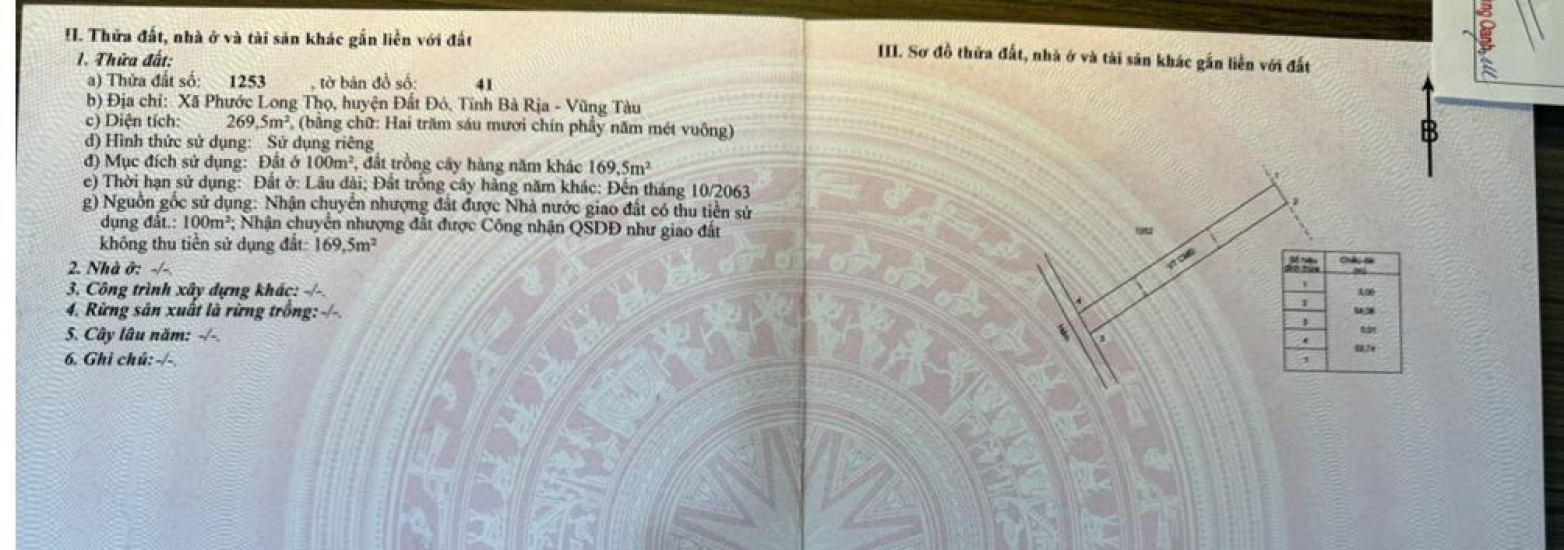 II. Thửa đất, nhà ở và tài sản khác gắn liền với đất
1. Thửa đất:
a) Thửa đất số: 1253 , tờ bản đồ số: 41
b) Địa chỉ: Xã Phước Long Thọ, huyện Đất Đỏ, Tỉnh Bà Rịa - Vũng Tàu
c) Diện tích: 269,5m², (bằng chữ: Hai trăm sáu mươi chín phẩy năm mét vuông)
d) Hình thức sử dụng: Sử dụng riêng
đ) Mục đích sử dụng: Đất ở 100m², đất trồng cây hàng năm khác 169,5m²
e) Thời hạn sử dụng: Đất ở: Lâu dài; Đất trồng cây hàng năm khác: Đến tháng 10/2063
g) Nguồn gốc sử dụng: Nhận chuyển nhượng đất được Nhà nước giao đất có thu tiền sử
dụng đất.: 100m²; Nhận chuyển nhượng đất được Công nhận QSDĐ như giao đất
không thu tiền sử dụng đất: 169,5m²
2. Nhà ở: -/-.
3. Công trình xây dựng khác: -/-.
4. Rừng sản xuất là rừng trồng: -/-.
5. Cây lâu năm: -/-.
6. Ghi chú: -/-.
III. Sơ đồ thửa đất, nhà ở và tài sản khác gắn liền với đất
B
1
2
1252
4
3
Hẻm
1
2
3
4
1
5,00
5,01
Oanh